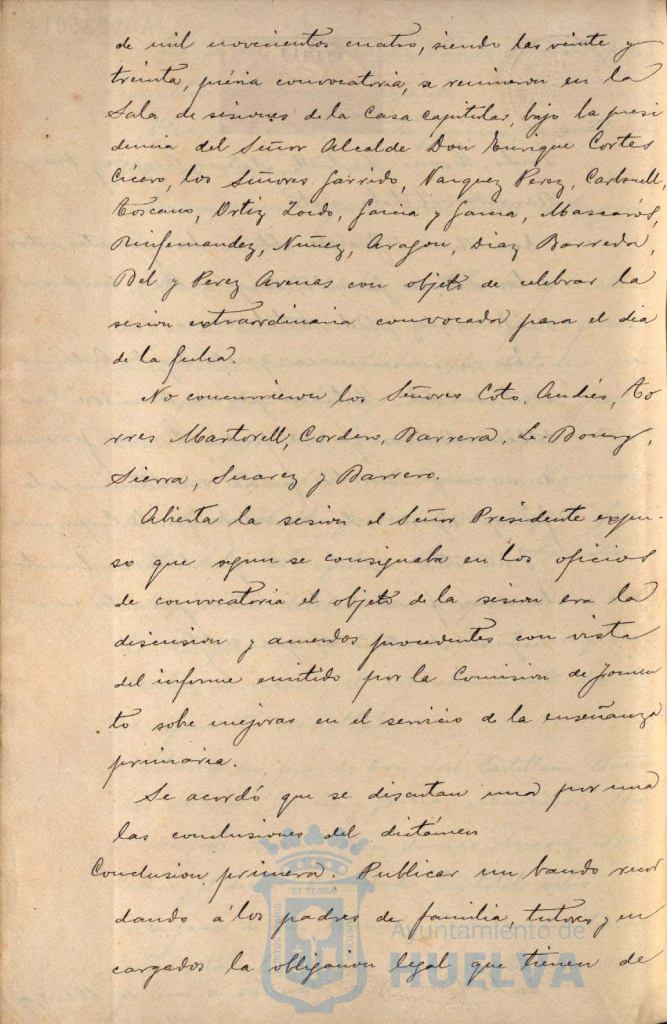 de mil novecientos cuatro, siendo las veinte y
treinta, prévia convocatoria, se reunieron en la
Sala de sesiones de la Casa capitular, bajo la presi
dencia del Señor Alcalde Don Enrique Cortes
Cícero, los Señores Garrido, Vazquez Perez, Carbonell,
Toscano, Ortiz Zordo, Garcia y Garcia, Mascarós,
Rinfernandez, Nuñez, Aragon, Diaz Barreda,
Bel y Perez Arenas con objeto de celebrar la
sesion extraordinaria convocada para el dia
de la fecha.
No concurrieron los Señores Coto, Andrés, To
rres Martorell, Cordero, Barrera, Le-Bourg,
Sierra, Suarez y Barrero.
Abierta la sesion el Señor Presidente expu-
so que segun se consignaba en los oficios
de convocatoria el objeto de la sesion era la
discusion y acuerdos procedentes con vista
del informe emitido por la Comision de Fomen
to sobre mejoras en el servicio de la enseñanza
primaria.
Se acordó que se discutan una por una
las conclusiones del dictámen
Conclusion primera. Publicar un bando recor
dando á los padres de familia, tutores y en
cargados la obligacion legal que tienen de
Ayuntamiento de
HUELVA